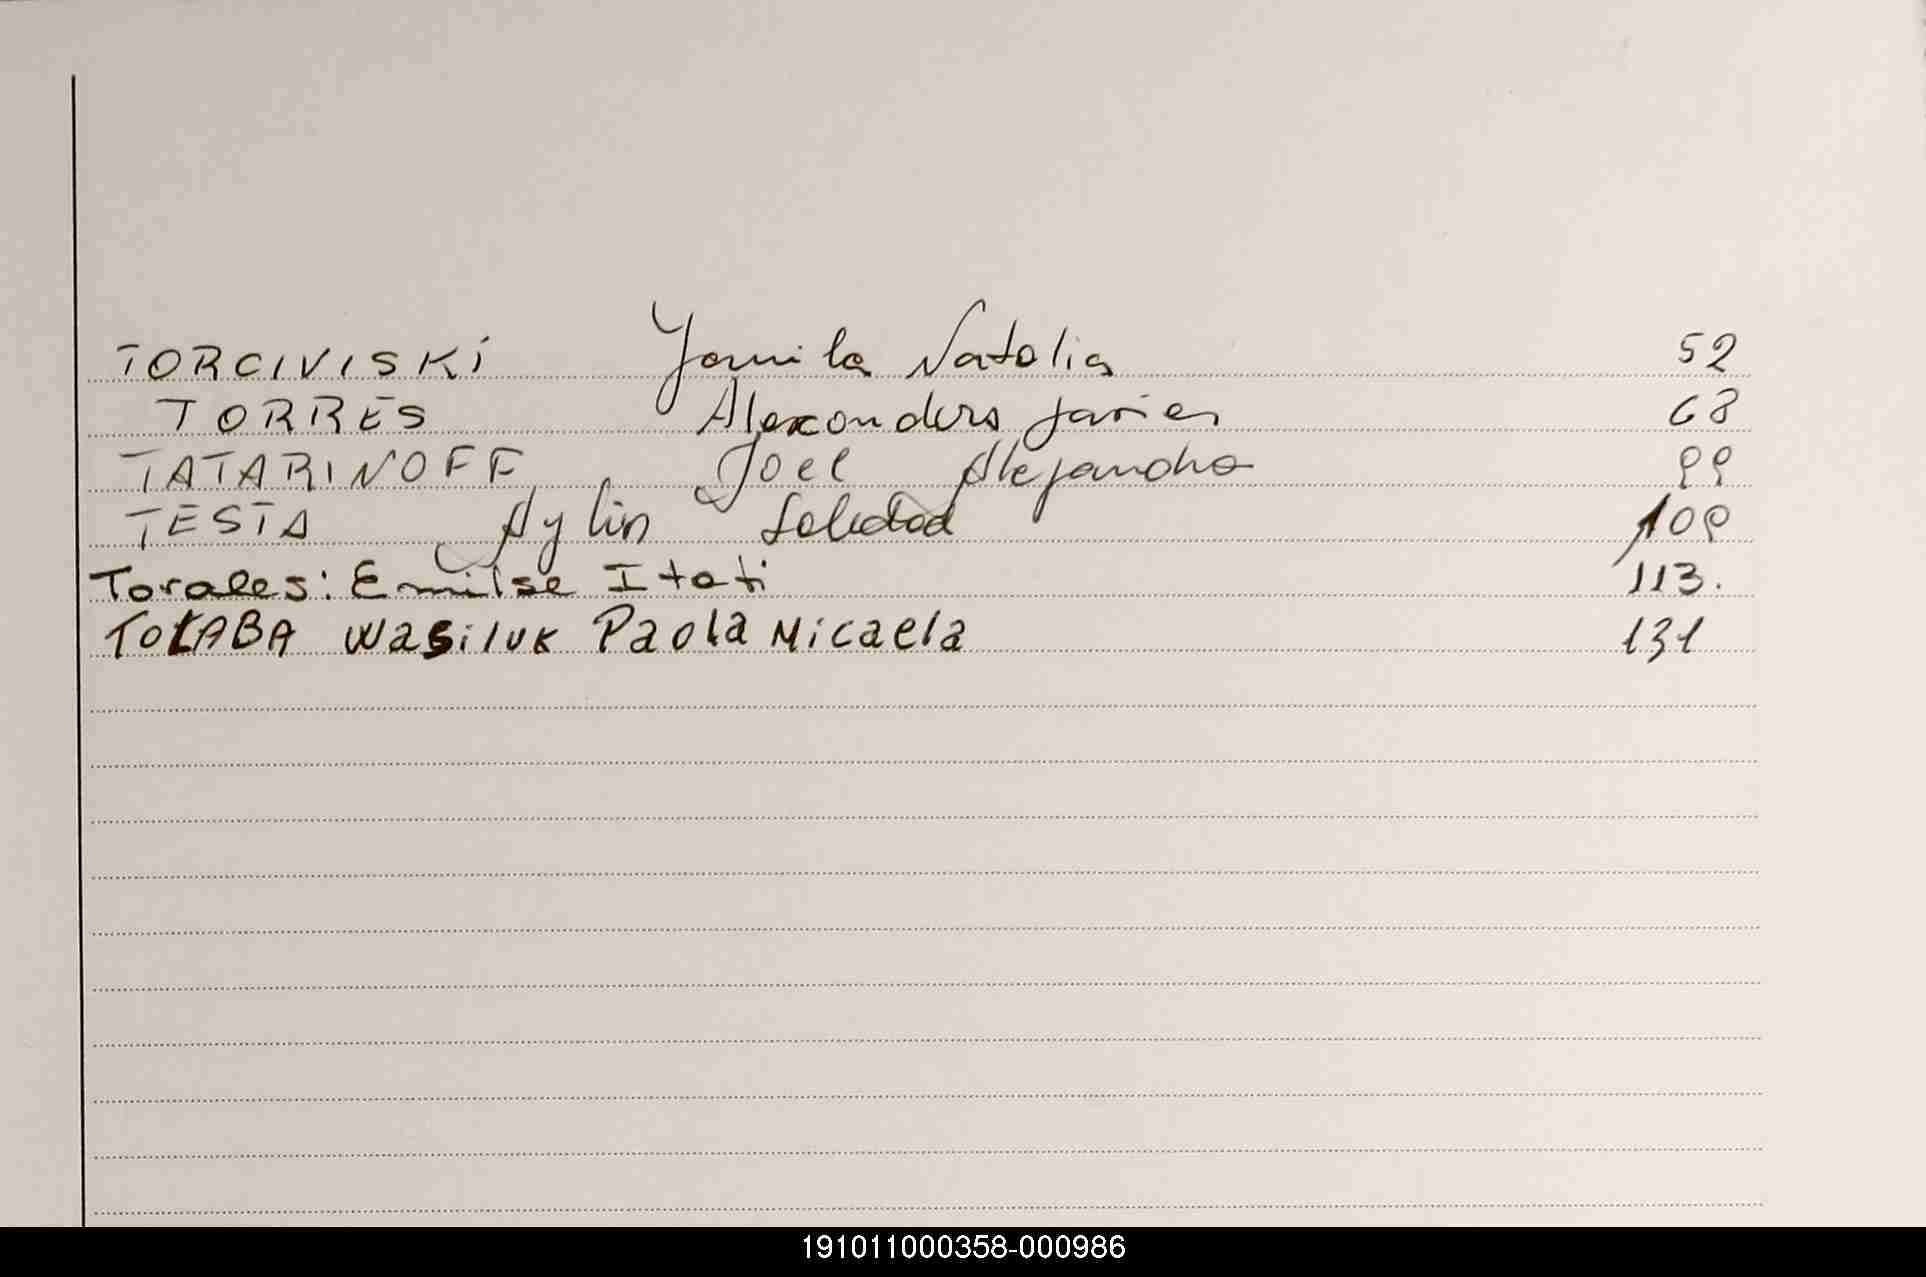 TORCIVISKI Yamila Natalia 52
TORRES Alexanders Javier 68
TATARINOFF Joel Alejandro 99
TESTA Aylin Soledad 109
Torales: Emilse Itati 113.
TOLABA Wasiluk Paola Micaela 131
191011000358-000986